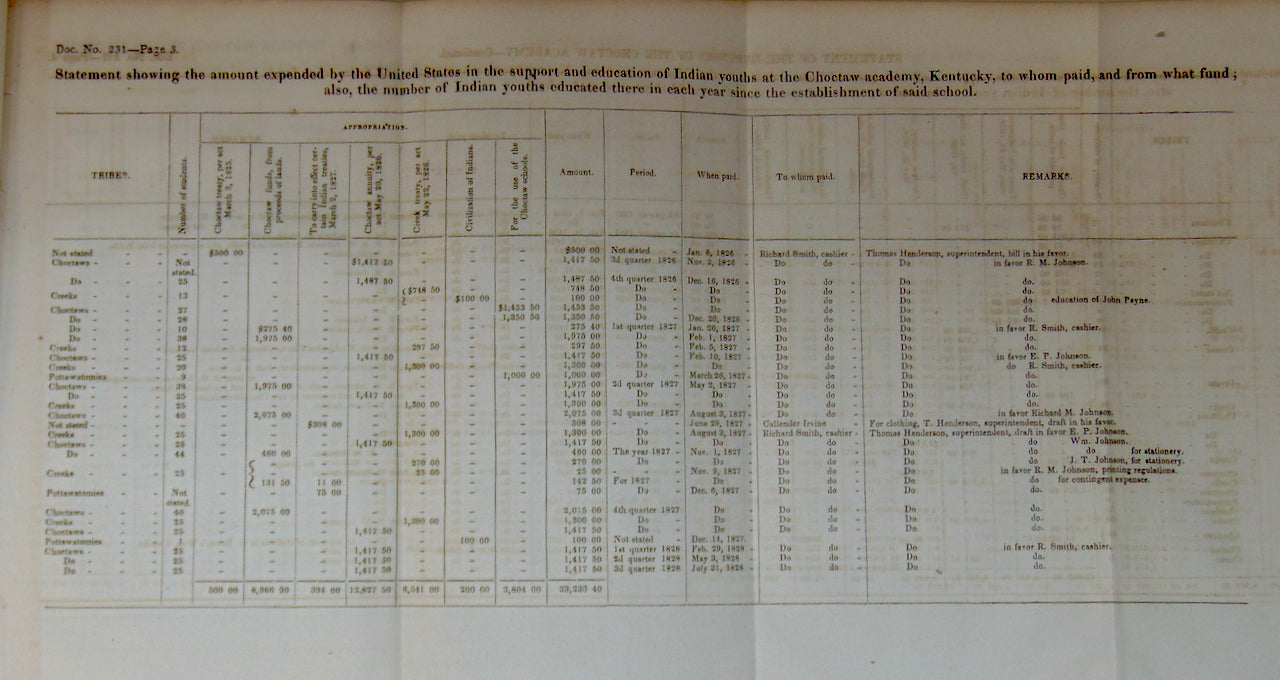 Doc. No. 231—Page 3.
Statement showing the amount expended by the United States in the support and education of Indian youths at the Choctaw academy, Kentucky, to whom paid, and from what fund;
also, the number of Indian youths educated there in each year since the establishment of said school.
APPROPRIATION.
TRIBES. Number of students. Choctaw treaty, per act March 3, 1825. Choctaw funds, from proceeds of lands. To carry into effect certain Indian treaties, March 2, 1827. Choctaw annuity, per act May 20, 1826. Creek treaty, per act May 22, 1826. Civilization of Indians. For the use of the Choctaw schools. Amount. Period. When paid. To whom paid. REMARKS.
Not stated - - - $500 00 - - - - - - $500 00 Not stated - Jan. 6, 1826 - Richard Smith, cashier - Thomas Henderson, superintendent, bill in his favor.
Choctaws - - - Not stated. - - - $1,417 50 - - - 1,417 50 3d quarter 1826 Nov. 2, 1826 - Do do - Do in favor R. M. Johnson.
Do - - - 25 - - - 1,487 50 - - - 1,487 50 4th quarter 1826 Dec. 16, 1826 - Do do - Do do.
{ $748 50 - - 748 50 Do - Do - Do do - Do do.
Creeks - - - 13 - - - - - $100 00 - 100 00 Do - Do - Do do - Do do education of John Payne.
Choctaws - - - 27 - - - - - - $1,453 50 1,453 50 Do - Do - Do do - Do do.
Do - - - 28 - - - - - - 1,350 50 1,350 50 Do - Dec. 20, 1826 - Do do - Do do.
Do - - - 10 - $275 40 - - - - - 275 40 1st quarter 1827 Jan. 20, 1827 - Do do - Do in favor R. Smith, cashier.
Do - - - 38 - 1,975 00 - - - - - 1,975 00 Do - Feb. 1, 1827 - Do do - Do do.
Creeks - - - 12 - - - - 297 50 - - 297 50 Do - Feb. 5, 1827 - Do do - Do do.
Choctaws - - - 25 - - - 1,417 50 - - - 1,417 50 Do - Feb. 10, 1827 - Do do - Do in favor E. P. Johnson.
Creeks - - - 20 - - - - 1,300 00 - - 1,300 00 Do - Do - Do do - Do do R. Smith, cashier.
Pottawatomies - - 9 - - - - - - 1,000 00 1,000 00 Do - March 26, 1827 - Do do - Do do.
Choctaws - - - 38 - 1,975 00 - - - - - 1,975 00 2d quarter 1827 May 2, 1827 - Do do - Do do.
Do - - - 25 - - - 1,417 50 - - - 1,417 50 Do - Do - Do do - Do do.
Creeks - - - 25 - - - - 1,300 00 - - 1,300 00 Do - Do - Do do - Do do.
Choctaws - - - 40 - 2,075 00 - - - - - 2,075 00 3d quarter 1827 August 3, 1827 - Do do - Do in favor Richard M. Johnson.
Not stated - - - - - - $308 00 - - - - 308 00 - - June 29, 1827 - Callender Irvine - For clothing, T. Henderson, superintendent, draft in his favor.
Creeks - - - 25 - - - - 1,300 00 - - 1,300 00 Do - August 3, 1827 - Richard Smith, cashier - Thomas Henderson, superintendent, draft in favor E. P. Johnson.
Choctaws - - - 25 - - - 1,417 50 - - - 1,417 50 Do - Do - Do do - Do do Wm. Johnson.
Do - - - 44 - 460 00 - - - - - 460 00 The year 1827 - Nov. 1, 1827 - Do do - Do do do for stationery.
{ - - - 270 00 - - 270 00 Do - Do - Do do - Do do J. T. Johnson, for stationery.
Creeks - - - 25 - - - - 25 00 - - 25 00 - - Nov. 2, 1827 - Do do - Do in favor R. M. Johnson, printing regulations.
131 50 11 00 - - - - 142 50 For 1827 - Do - Do do - Do do for contingent expenses.
Pottawatomies - - Not stated. - - 75 00 - - - - 75 00 Do - Dec. 6, 1827 - Do do - Do do.
Choctaws - - - 40 - 2,075 00 - - - - - 2,075 00 4th quarter 1827 Do - Do do - Do do.
Creeks - - - 25 - - - - 1,300 00 - - 1,300 00 Do - Do - Do do - Do do.
Choctaws - - - 25 - - - 1,417 50 - - - 1,417 50 Do - Do - Do do - Do do.
Pottawatomies - - 1 - - - - - 100 00 - 100 00 Not stated - Dec. 14, 1827.
Choctaws - - - 25 - - - 1,417 50 - - - 1,417 50 1st quarter 1828 Feb. 29, 1828 - Do do - Do in favor R. Smith, cashier.
Do - - - 25 - - - 1,417 50 - - - 1,417 50 2d quarter 1828 May 3, 1828 - Do do - Do do.
Do - - - 25 - - - 1,417 50 - - - 1,417 50 3d quarter 1828 July 31, 1828 - Do do - Do do.
500 00 8,966 90 394 00 12,827 50 6,541 00 200 00 3,804 00 33,233 40